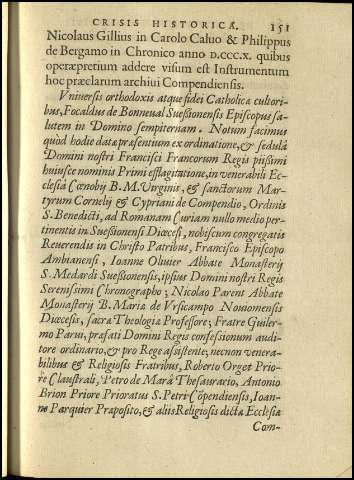 CRISIS HISTORICA. 151
Nicolaus Gillius in Carolo Caluo & Philippus
de Bergamo in Chronico anno D.CCC.X. quibus
operæpretium addere visum est Instrumentum
hoc præclarum archiui Compendiensis.
Vniversis orthodoxis atque fidei Catholica cultori-
bus, Focaldus de Bonneual Suessionensis Episcopus sa-
lutem in Domino sempiternam. Notum facimus
quòd hodie data præsentium ex ordinatione, & sedulâ
Domini nostri Francisci Francorum Regis piissimi
huiusce nominis Primi efflagitatione, in venerabili Ec-
clesiâ Cœnobij B. M. Virginis, & sanctorum Mar-
tyrum Cornelij & Cypriani de Compendio, Ordinis
S. Benedicti, ad Romanam Curiam nullo medio per-
tinentis in Suessionensi Diœcesi, nobiscum congregatis
Reuerendis in Christo Patribus, Francisco Episcopo
Ambianensi, Ioanne Oliuier Abbate Monasterij
S. Medardi Suessionensis, ipsius Domini nostri Regis
Serenissimi Chronographo; Nicolao Parent Abbate
Monasterij B. Maria de Vrsicampo Nouiomensis
Diœcesis, sacræ Theologia Professore; Fratre Guiler-
mo Parui, præfati Domini Regis confessionum audi-
tore ordinario, & pro Rege assistente; necnon venera-
bilibus & Religiosis Fratribus, Roberto Orget Prio-
re Claustrali, Petro de Marâ Thesaurario, Antonio
Brion Priore Prioratus S. Petri Cōpendiensis, Ioan-
ne Parquier Præposito, & aliis Religiosis dicta Ecclesia
Com-